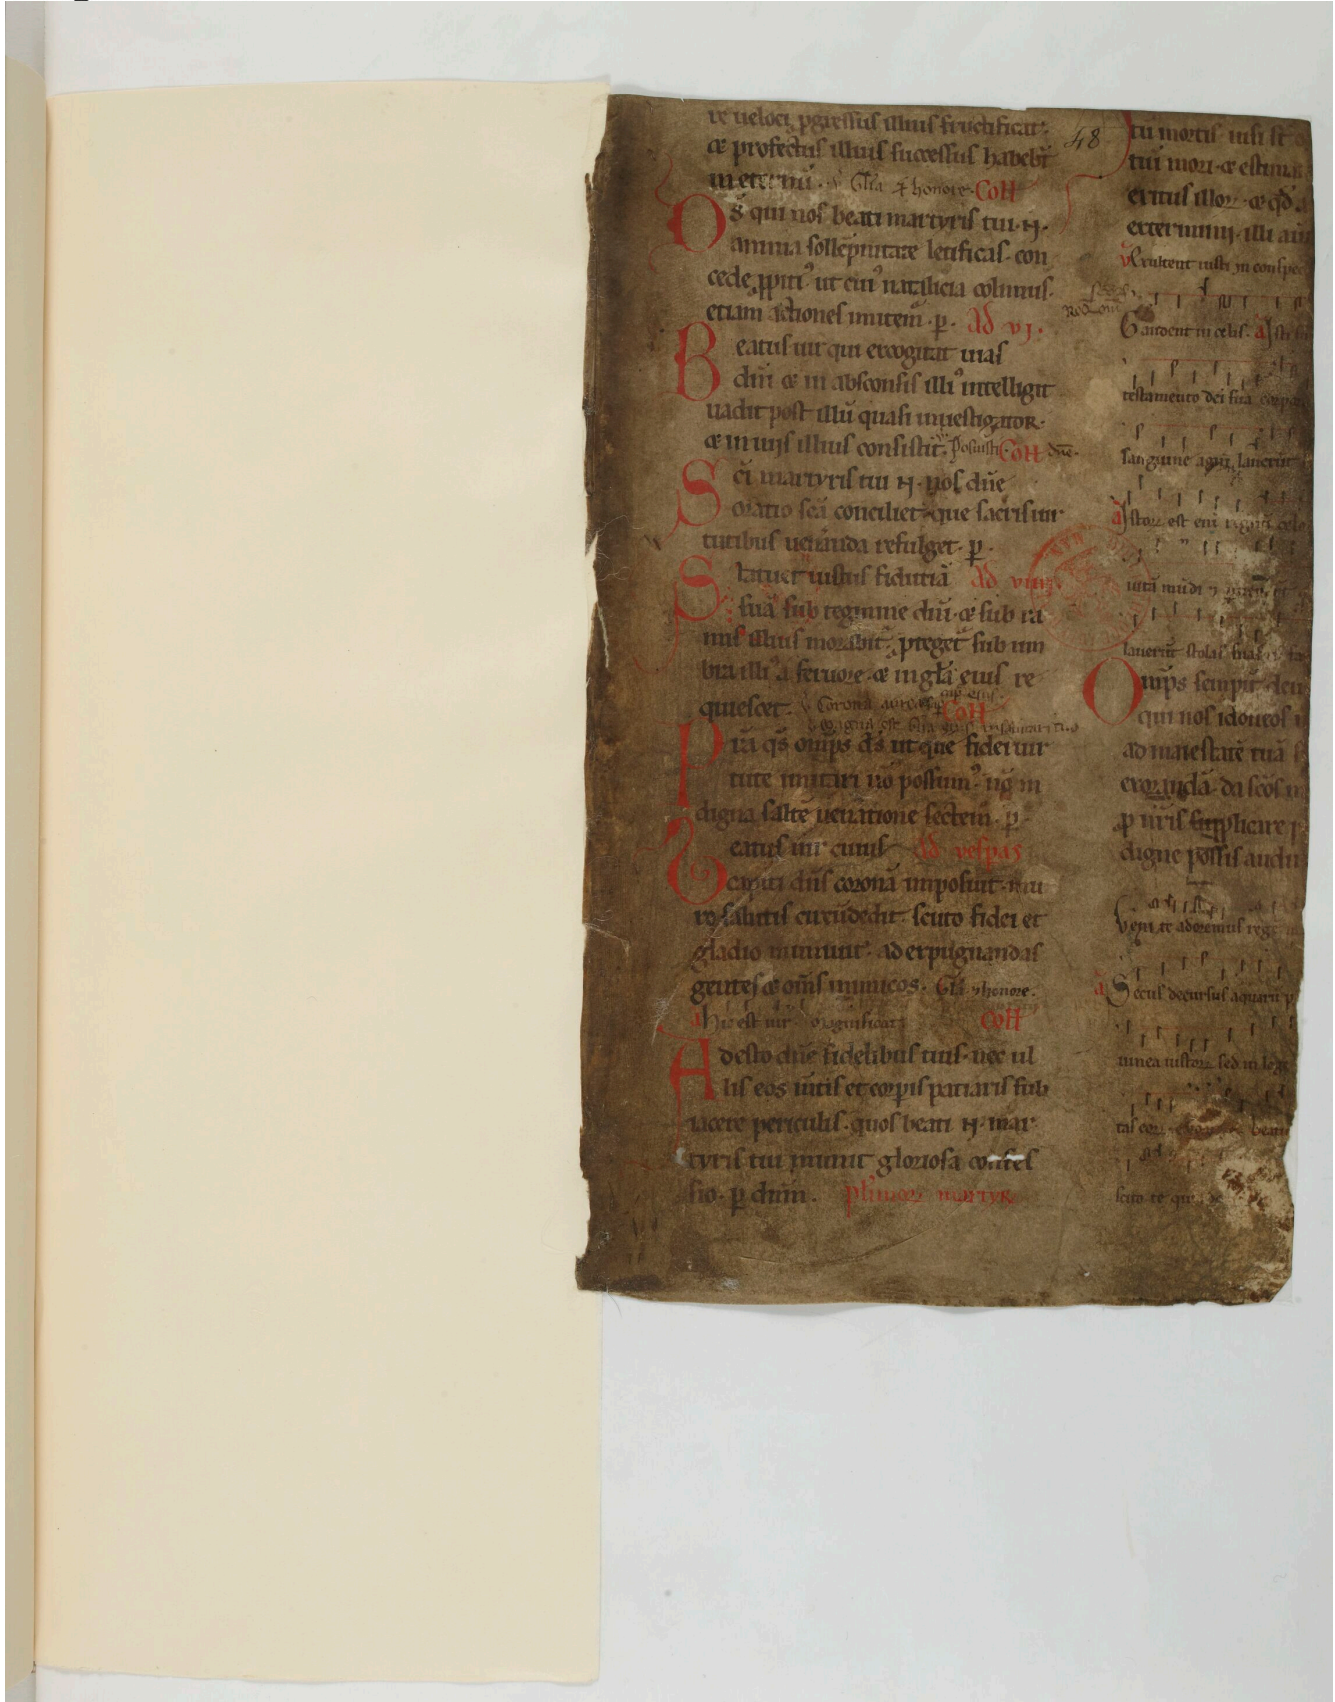 re ueloci ꝓgressus illius fructificat·
⁊ profectus illius successus habebt̄
in eternū. ℣ Gl̄ia ⁊ honore· Coll̄
Ds̄ qui nos beati martyris tui· N·
annua sollēpnitate letificas· con
cede ꝓpiti᷒· ut cui᷒ natalicia colimus·
etiam actiones imitem̄· p̄· Ad vj·
Beatus uir qui excogitat uias
dn̄i ⁊ in absconsis illi᷒ intelligit
uadit post illū quasi inuestigator·
⁊ in uijs illius consistit· Posuisti dn̄e· Coll̄
Sc̄i martyris tui N· nos dn̄e
oratio sc̄a conciliet· que sacris uir
tutibus uen̄anda refulget· p̄·
Statuet iustus fidutiā Ad viiij·
suā sub tegmine dn̄i· ⁊ sub ra
mis illius morabit̄· ꝓteget̄ sub um
bra illi᷒ a feruore· ⁊ in gl̄a eius re
quiescet· ℣ Corona aurea sup̄ cap̄ eius· Coll̄
℣ Magna est gl̄ia eius in salutari tuo
P̄ra qs̄ om̄ps ds̄ ut que fidei uir
tute imitari nō possum᷒· ūg in
digna saltē uen̄atione sectem̄· p̄·
Beatus uir cuius Ad vesp̄as
capiti dn̄s coronā imposuit· mu
ro salutis circūdedit· scuto fidei et
gladio muniuit· ad expugnandas
gentes ⁊ om̄s inimicos· Gl̄ia ⁊ honore·
a hic est uir Magnificat Coll̄
Adesto dn̄e fidelibus tuis· nec ul
lis eos m̄tis et corp̄is patiaris sub
iacere periculis· quos beati N· mar
tyris tui munit gloriosa confes
sio· p̄ dn̄m· pl̄imoꝝ martyꝝ
48
tū mortis· uisi st̄
tiū mori· ⁊ estima
exitus illoꝝ· ⁊ qd̄ a
exterminij· illi aūt
℣ Exultent iusti in conspec
Gaudent in celis· a Isti s
testamento dei sua corpor
sanguine agni lauerūt
a Istoꝝ est enī regnū celo
uitā mūdi ⁊
lauerūt stolas suas
Om̄ps sempit̄ deu
qui nos idoneos
ad maiestatē tuā
exorandā· da sc̄os
ꝓ nr̄is supplicare
digne possis audi
Venite adoremus rege
a Secus decursus aquarū p
uinea iustoꝝ sed in lege
tas eoꝝ beati
scito te